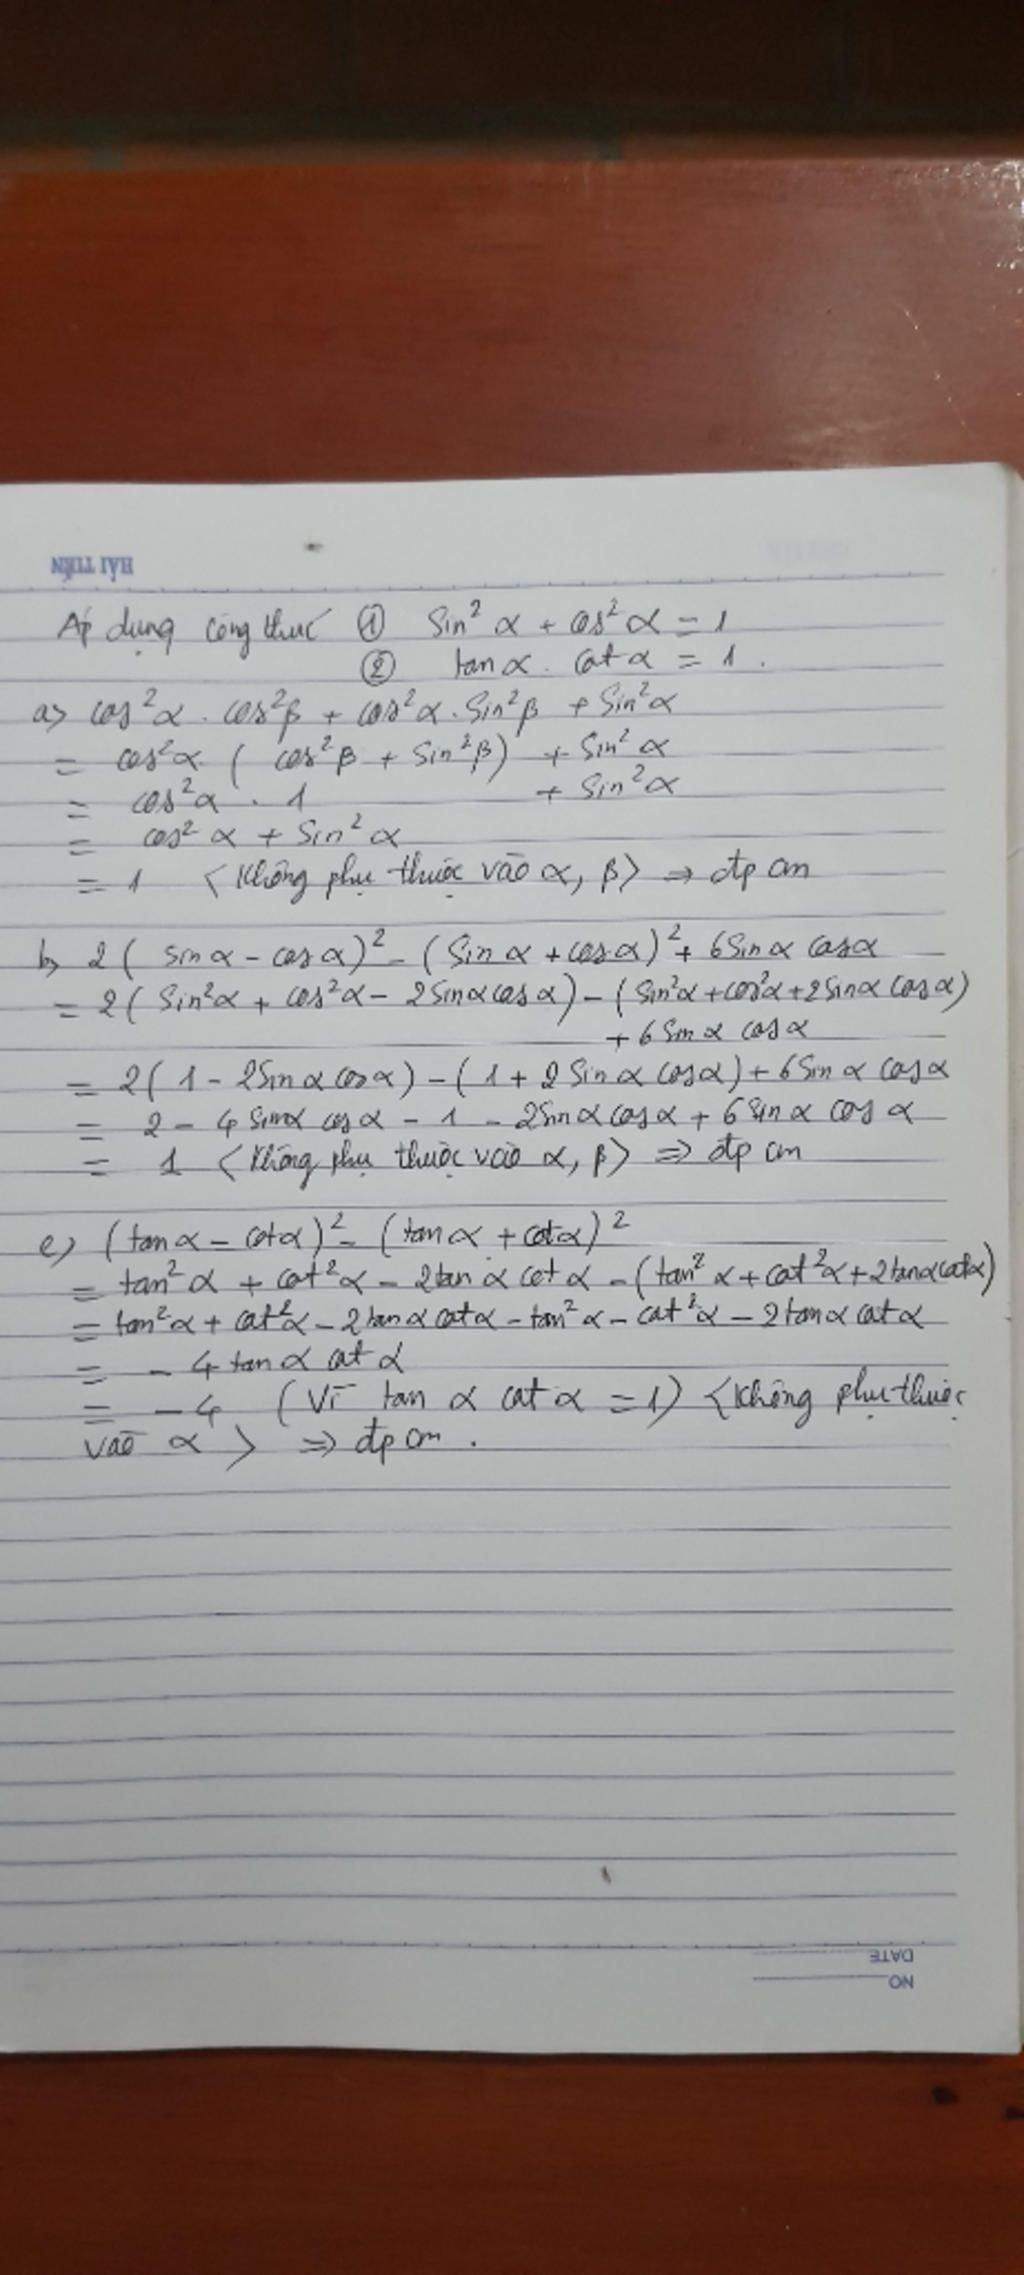 HẢI TIẾN
Áp dụng công thức ① Sin² α + cos² α = 1
② tan α . cot α = 1 .
a> cos² α . cos² β + cos² α . Sin² β + Sin² α
= cos² α ( cos² β + Sin² β ) + Sin² α
= cos² α . 1 + Sin² α
= cos² α + Sin² α
= 1 < Không phụ thuộc vào α, β > ⇒ đpcm
b> 2 ( sin α - cos α )² - ( Sin α + cos α )² + 6 Sin α cos α
= 2 ( Sin² α + cos² α - 2 Sin α cos α ) - ( Sin² α + cos² α + 2 Sin α cos α )
+ 6 Sin α cos α
= 2 ( 1 - 2 Sin α cos α ) - ( 1 + 2 Sin α cos α ) + 6 Sin α cos α
= 2 - 4 Sin α cos α - 1 - 2 Sin α cos α + 6 Sin α cos α
= 1 < Không phụ thuộc vào α, β > ⇒ đpcm
c) ( tan α - cot α )² - ( tan α + cot α )²
= tan² α + cot² α - 2 tan α cot α - ( tan² α + cot² α + 2 tan α cot α )
= tan² α + cot² α - 2 tan α cot α - tan² α - cot² α - 2 tan α cot α
= - 4 tan α cot α
= - 4 ( Vì tan α cot α = 1 ) < Không phụ thuộc
vào α > ⇒ đpcm .
DATE
NO